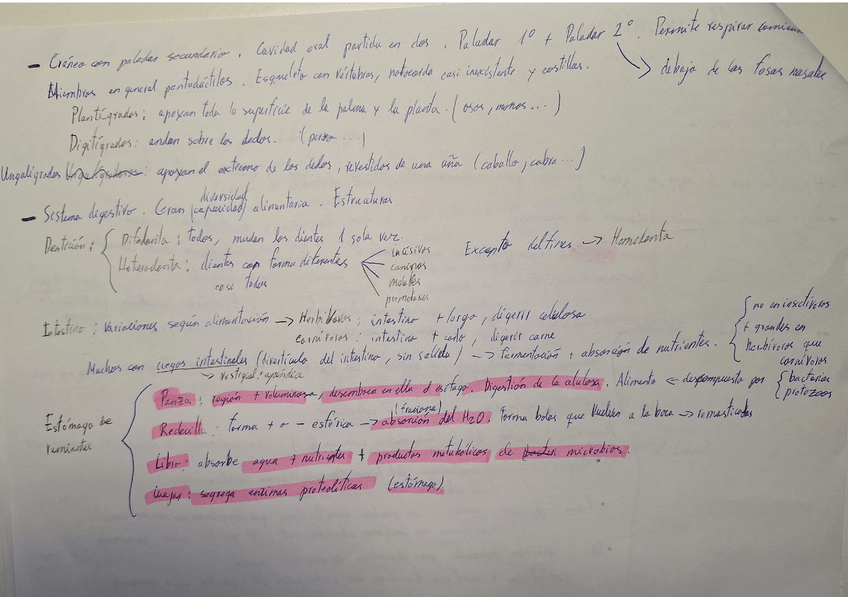 - Cráneo con paladar secundario. Cavidad oral partida en dos. Paladar 1º + Paladar 2º. Permite respirar comiendo
debajo de las fosas nasales
Miembros en general pentadáctilos. Esqueleto con vértebras, notocorda casi inexistente y costillas.
Plantígrados: apoyan toda la superficie de la palma y la planta. (osos, monos...)
Digitígrados: andan sobre los dedos. (perro...)
Ungulígrados: apoyan el extremo de los dedos, revestidos de una uña (caballo, cabra...)
- Sistema digestivo. Gran (capacidad) diversidad alimentaria. Estructuras
Dentición: Difodonta: todos, mudan los dientes 1 sola vez
Heterodonta: dientes con forma diferentes
casi todos
incisivos
caninos
molales
premolares
Excepto delfines → Homodonta
Intestino: Variaciones según alimentación → Herbívoros: intestino + largo, digerir celulosa
carnívoros: intestino + corto, digerir carne
Muchos con ciegos intestinales (divertículo del intestino, sin salida) → Fermentación + absorción de nutrientes.
→ vestigial: apéndice
no en insectívoros
+ grandes en
herbívoros que
carnívoros
Estómago de
rumiantes
Panza: región + voluminosa, desemboca en ella el esófago. Digestión de la celulosa. Alimento ← descompuesto por
bacterias
protozoos
Redecilla: forma + o - esférica → absorción del H2O. Forma bolas que vuelven a la boca → remasticadas
Libro: absorbe agua + nutrientes + productos metabólicos de microbios.
Cuajar: segrega enzimas proteolíticas (estómago)